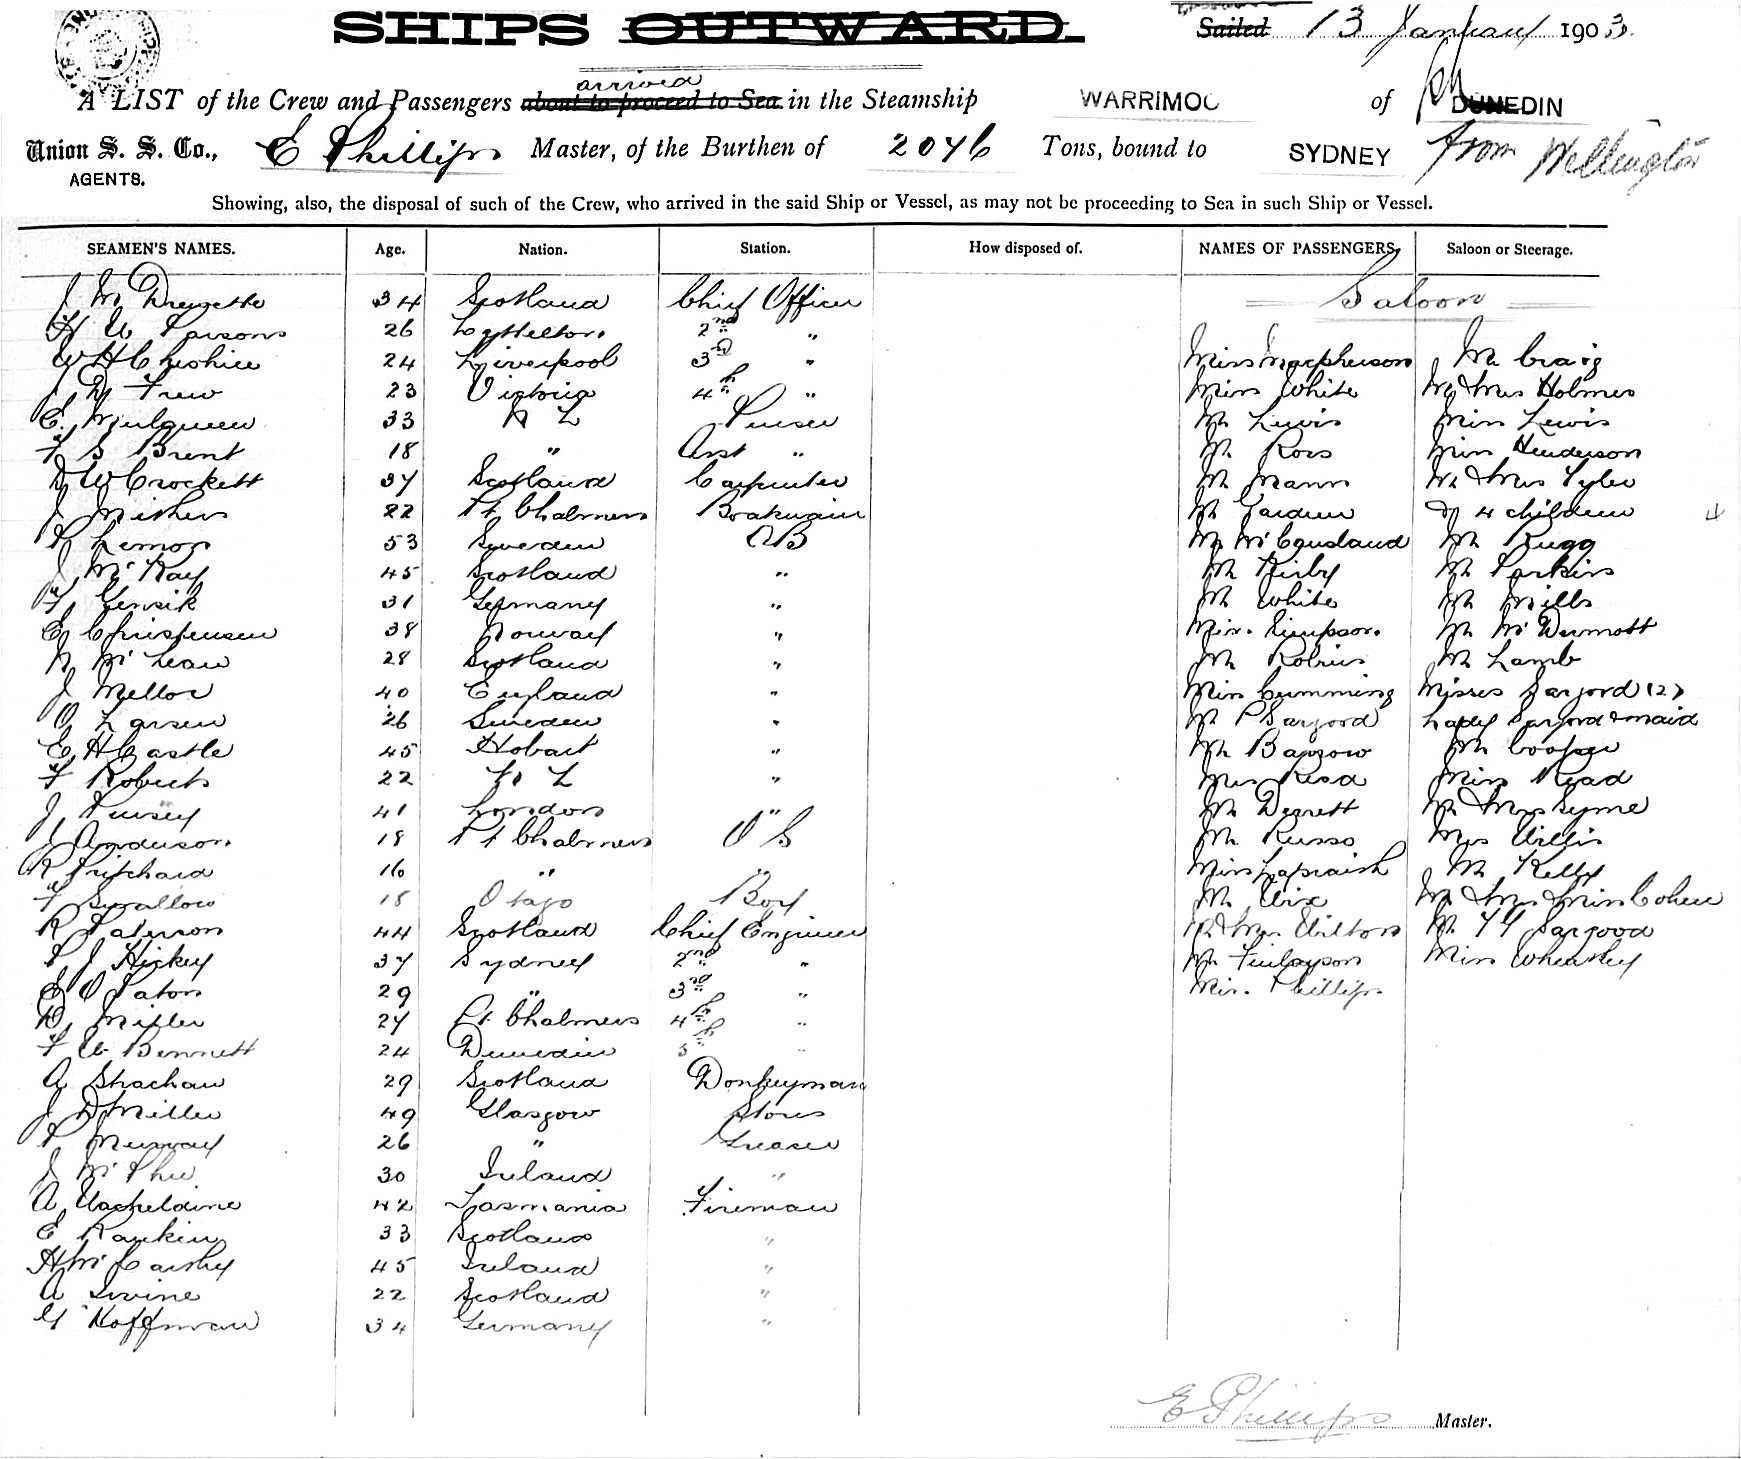 SHIPS OUTWARD. Sailed 13 January 1903
arrived
A LIST of the Crew and Passengers about to proceed to Sea in the Steamship WARRIMOO of DUNEDIN
Union S. S. Co., E Phillips Master, of the Burthen of 2046 Tons, bound to SYDNEY from Wellington
AGENTS.
Showing, also, the disposal of such of the Crew, who arrived in the said Ship or Vessel, as may not be proceeding to Sea in such Ship or Vessel.
SEAMEN'S NAMES. Age. Nation. Station. How disposed of. NAMES OF PASSENGERS, Saloon or Steerage.
Saloon
J M 34 Scotland Chief Officer
H W Parsons 26 Lyttelton 2nd "
W H Cheshire 24 Liverpool 3rd " Miss Macpherson Mr Craig
J D Frew 23 Victoria 4th " Miss White Mr & Mrs Holmes
E. Mulqueen 33 N Z Purser Mr Lewis Miss Lewis
F S Brent 18 " Asst " Mr Ross Miss Henderson
D W Crockett 37 Scotland Carpenter Mr Mann Mr & Mrs Tyler
J 22 Pt Chalmers Boatswain Mr Gardner & 4 children 4
53 Sweden AB Mr McCausland Mr Rugg
J McKay 45 Scotland " Mr Kirby Mr Parkins
31 Germany " Mr White Mr Mills
E Christensen 38 Norway " Miss Simpson Mr McDermott
N McLean 28 Scotland " Mr Robins Mr Lamb
J Mellor 40 England " Miss Cumming Misses Sargood (2)
O Larsen 26 Sweden " Mr P Sargood Lady Sargood & maid
E H Castle 45 Hobart " Mr Barrow Mr Cooper
F Roberts 22 N Z " Mrs Read Miss Read
J Pursey 41 London " Mr Derrett Mr & Mrs Syme
J Anderson 18 Pt Chalmers O S Mr Russo Mrs Willis
R Pritchard 16 " " Miss Mr Kelly
F Swallow 18 Otago Boy Mr Wix Mr & Mrs & Miss Cohen
R Paterson 44 Scotland Chief Engineer Mr & Mrs Wilton Mr Sargood
P J Hickey 37 Sydney 2nd " Mr Finlayson Miss Wheatley
E O Paton 29 " 3rd " Miss Phillips
D Miller 27 Pt Chalmers 4th "
F W Bennett 24 Dunedin 5th "
A Strachan 29 Scotland Donkeyman
J D Miller 49 Glasgow Stores
P Murray 26 " Greaser
J McPhee 30 Ireland "
A 42 Tasmania Fireman
E Rankin 33 Scotland "
H McCarthy 45 Ireland "
A Irvine 22 Scotland "
G Hoffman 34 Germany "
E Phillips Master.